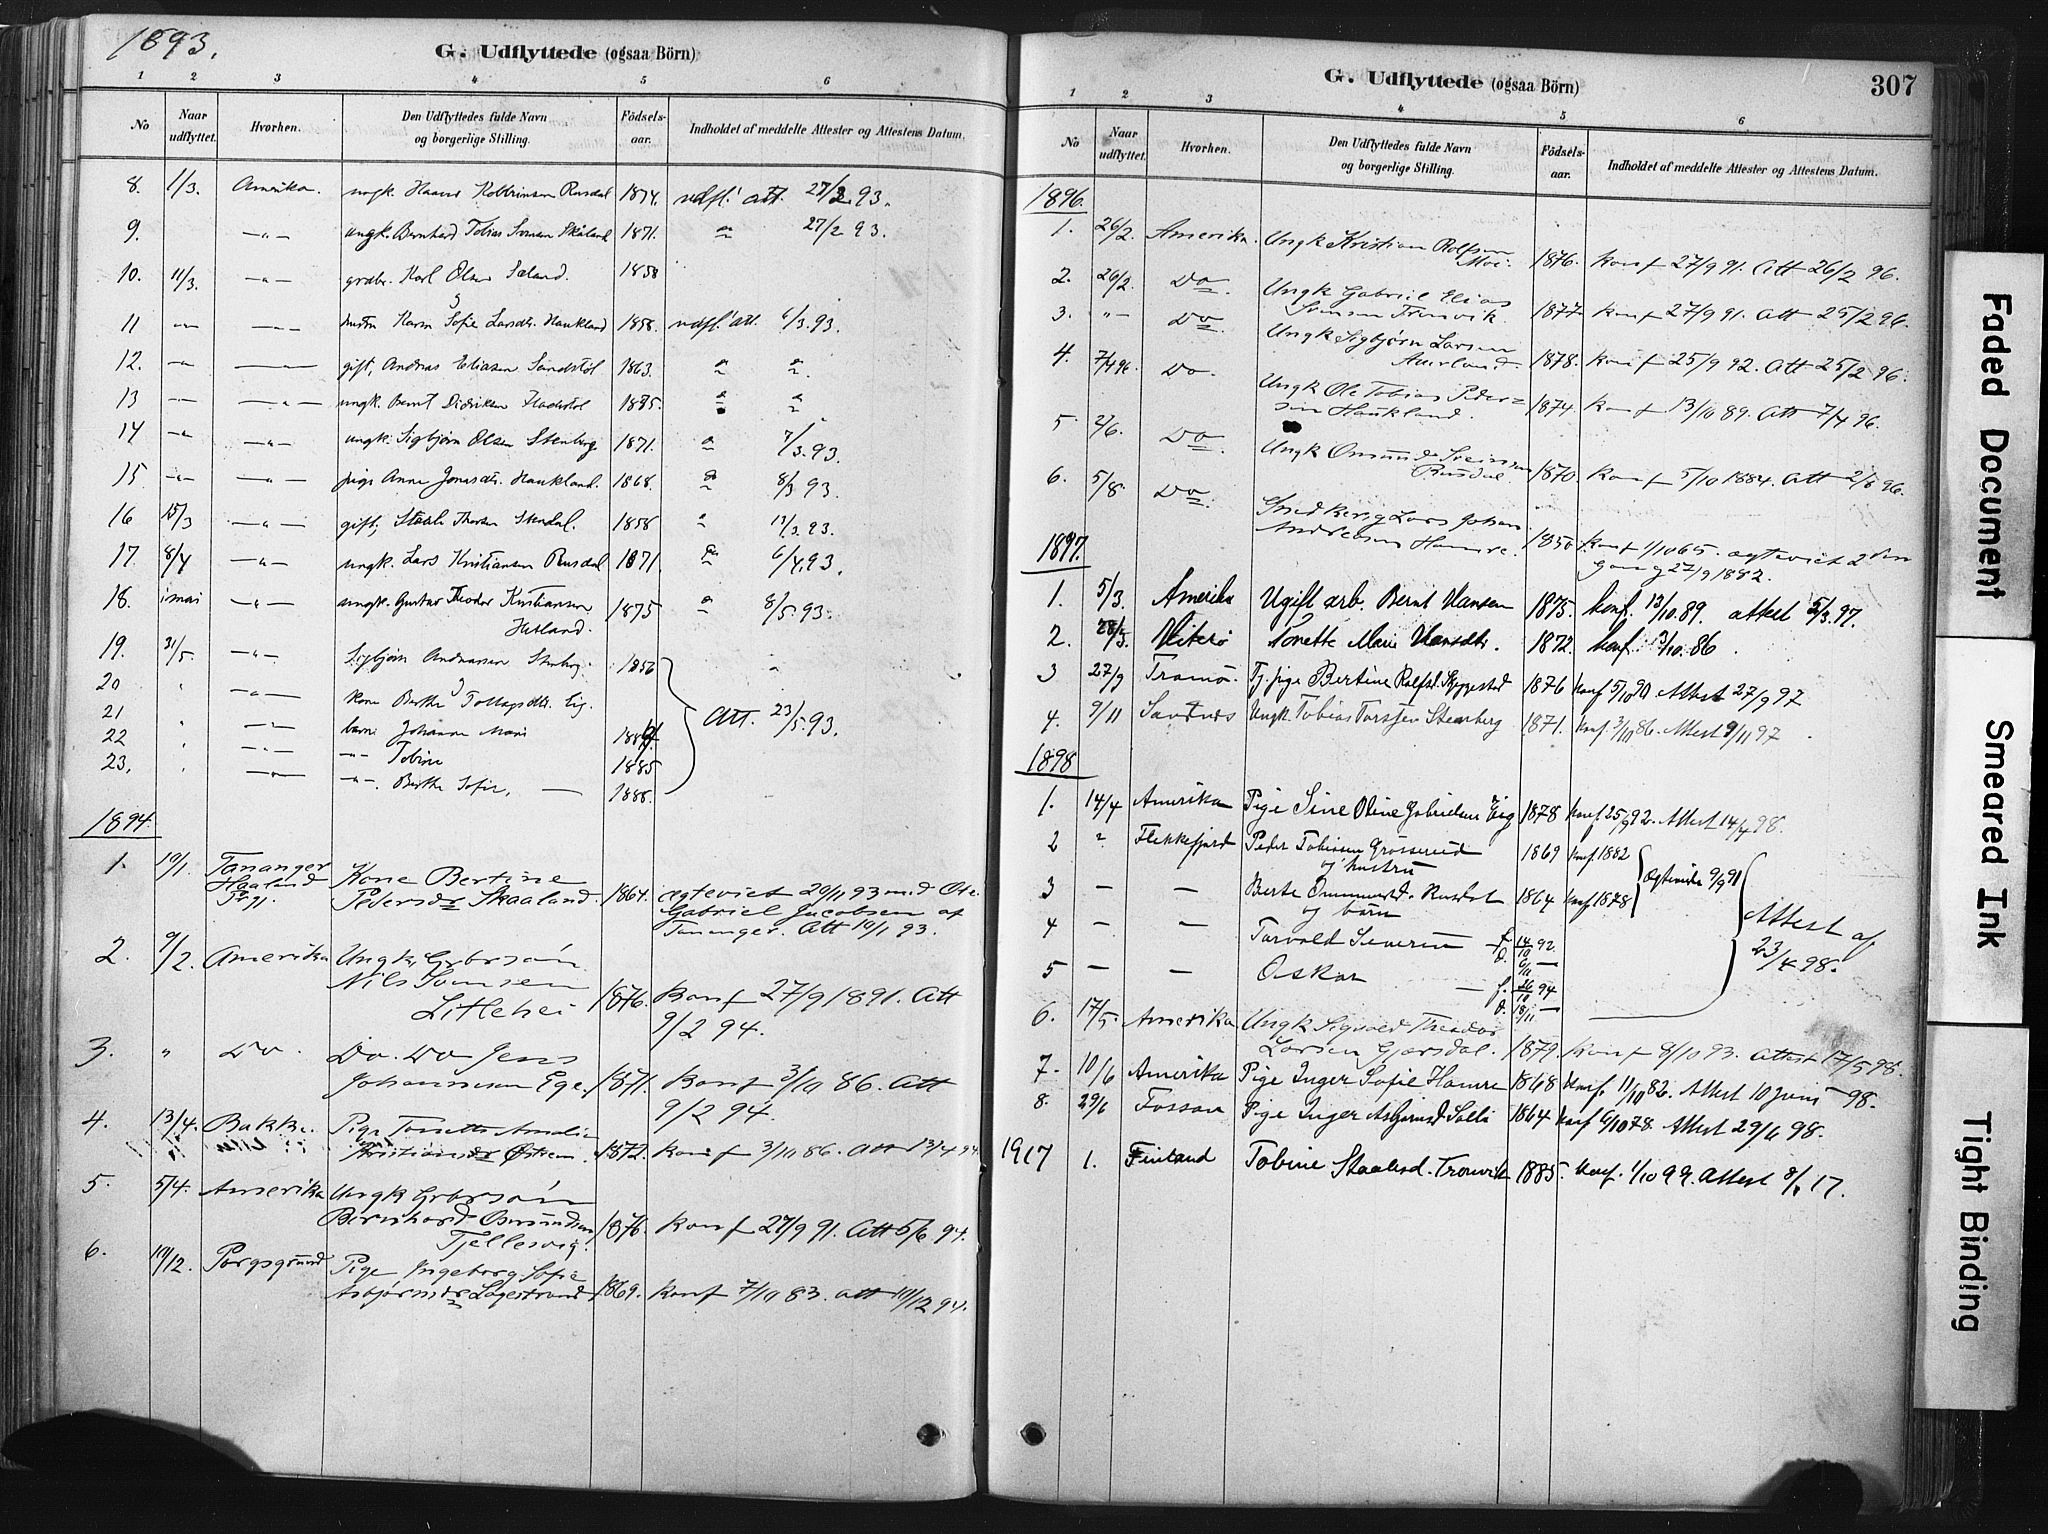 1893.
G. Udflyttede (ogsaa Börn)
1 2 3 4 5 6
No Naar udflyttet. Hvorhen. Den Udflyttedes fulde Navn og borgerlige Stilling. Födsels-aar. Indholdet af meddelte Attester og Attestens Datum.
8. 1/3. Amerika. ungk. Rusdal 1874. udfl. att. 27/2.93.
9. -"- ungk. Bernhard Tobias Skåland 1871. " 27/2 93.
10. 11/3. -"- Karl Olsen Sæland. 1858
11 -"- -"- hustru Karen Sofie Larsdtr. Haukland 1858. udfl. att. 6/3.93.
12. -"- gift, Andreas Eliasen Sandstöl 1863. " "
13 -"- ungk. Bernt Didriksen 1875. " "
14 -"- -"- ungk. Sigbjørn Olsen Stenberg 1871. " 7/3.93.
15. -"- -"- pige Anna Jonasdtr. Haukland. 1868. " 8/3 93.
16 15/3 -"- gift, 1858 " 13/3.93.
17. 8/4 -"- ungk. Lars Kristiansen Rusdal 1871. " 6/4.93.
18. i mai -"- ungk. Gustav Theodor Kristiansen
Hetland. 1875 " 8/5.93.
19. 21/5. -"- Sigbjørn Andreasen Stenberg. 1856
20 " -"- Kone Berthe Eig.
21 " -"- barn: Johanne Marie
22 " -"- -"- Tobine 1885
23. " -"- -"- Berthe Sofie. 1888.
Att. 23/5.93.
1894.
1. 19/1. Tananger
Haaland
Prgj. Kone Bertine
Pedersdr Skaaland. 1864. ægteviet 29/11 93 med Ole
Gabriel Jacobsen af
Tananger. Att 19/1 93.
2. 9/2. Amerika Ungk, Grbrsøn
Nils Svensen
Litlehei 1876. Konf 27/9 1891. Att
9/2 94.
3. " Do. Do. Do Jens
Johannesen Ege. 1871. Konf 3/10 86. Att
9/2 94.
4. 13/4. Bakke. Pige Tonette Amalie
Kristiansdr 1872. konf 3/10 86. Att 13/4 94.
5. 5/4. Amerika Ungk Grbrsøn
Bernhard Osmundsen
Tjellesvig. 1876. konf 27/9 91. Att 5/6 94.
6. 10/12. Porsgrund Pige Ingeborg Sofie
Asbjørnsdr Løgestrand 1869. konf 7/10 83. att 10/12 94.
G. Udflyttede (ogsaa Börn) 307
1 2 3 4 5 6
No Naar udflyttet. Hvorhen. Den Udflyttedes fulde Navn og borgerlige Stilling. Födsels-aar. Indholdet af meddelte Attester og Attestens Datum.
1896.
1. 26/2. Amerika. Ungk Kristian Rolfsen
Moi. 1876. konf 27/9 91. Att 26/2 96.
2. 26/2. Do. Ungk Gabriel Elias
1877. konf 27/9 91. Att 25/2 96.
3. "- Do Ungk Sigbjørn Larsen
Aurland. 1878. konf 25/9 92. Att 25/2 96.
4. 7/4 96. Do. Ungk Ole Tobias Peder=
sen Haukland. 1874. konf 13/10 89. Att 7/4 96.
5. 2/6. Do Ungk Omund Sveinsen
Rusdal 1870. konf 5/10 1884. Att 2/6 96.
6. 5/8. Do. Lars Johan
Andreasen Hamre. 1850. konf 1/10 65. ægteviet 2den
Gang 27/9 1882.
1897.
1. 5/3. Amerika Ugift arb. Bernt Hansen 1875. konf. 13/10.89. attest 5/3.97.
2. 28/5. Tonette Marie Hansdtr. 1872. konf. 3/10.86.
3 27/9 Tromö. Tj. pige Bertine Rolfsd. Skeggestad 1876 konf 5/10 90 Attest 27/9 97
4. 9/11 Sandnes Ungk. Tobias Stenberg 1871. konf. 3/10 86. Attest 9/11 97.
1898
1. 14/4 Amerika Pige Sine Oline Gabrielsen Eig 1878 konf. 25/9 92. Attest 14/4 98.
2 " Flekkefjord Peder Tobiasen Grösserud 1869 konf. 1882
og hustru
3 — — Berte Ommundsd. Rusdal 1864 konf. 1878
Ægteviede 9/9 91
og börn
4 — — Torvald Severin — f. 14/10 92
d. 6/11 —
5 — — Oskar — f. 26/10 94
d. 18/11 —
Attest af
23/4 98.
6. 17/5. Amerika Ungk Sigvald Theodor
Larsen Gjersdal. 1879. konf 8/10 93. Attest 17/5 98.
7. 10/6 Amerika Pige Inger Sofie Hamre 1868 konf. 1/10 82. Attest 10 juni 98.
8. 29/6 Fossan Pige Inger Asbjørnsd Solli 1864 konf 6/10 78. Attest 29/6 98.
1917 1. Finland Tobine Staalesd. Tronvik 1885. konf. 1/10 99. Attest 17.
Faded Document
Smeared Ink
Tight Binding